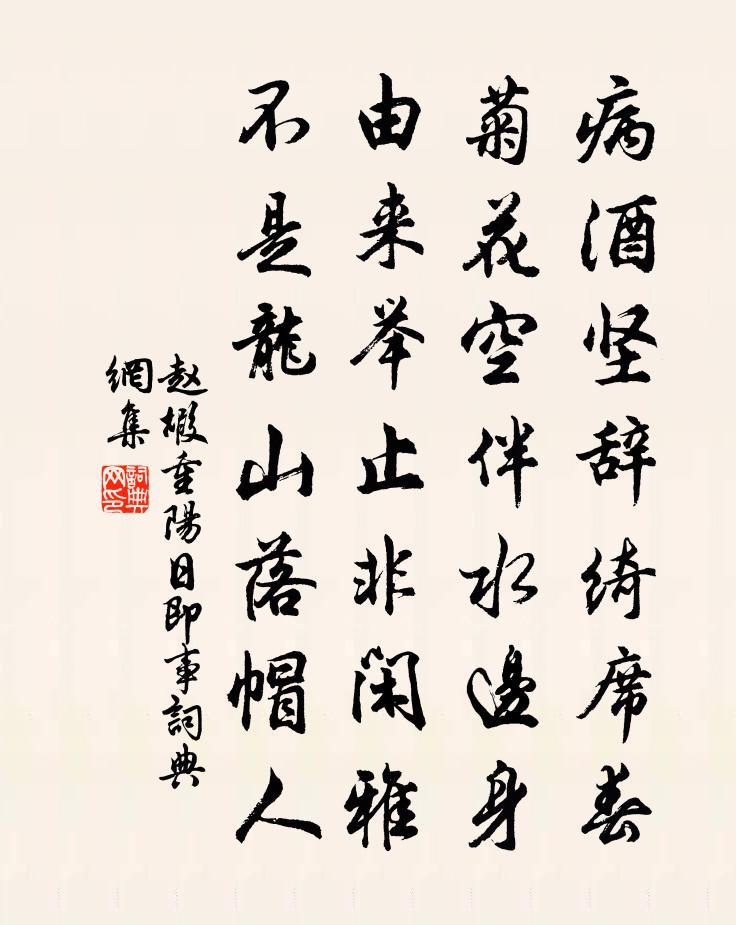 病酒坚辞绮席春
菊花空伴水邊身
由来举止非闲雅
不是龍山落帽人
赵嘏重陽日即事詞典
網集
詞典网印